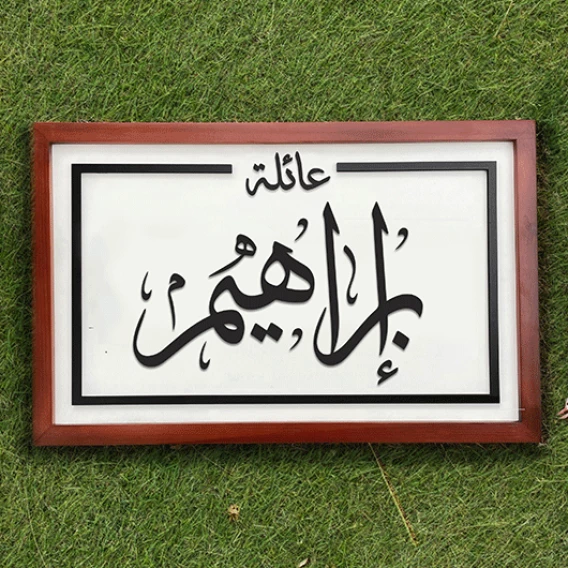 عائلة
إبراهيم